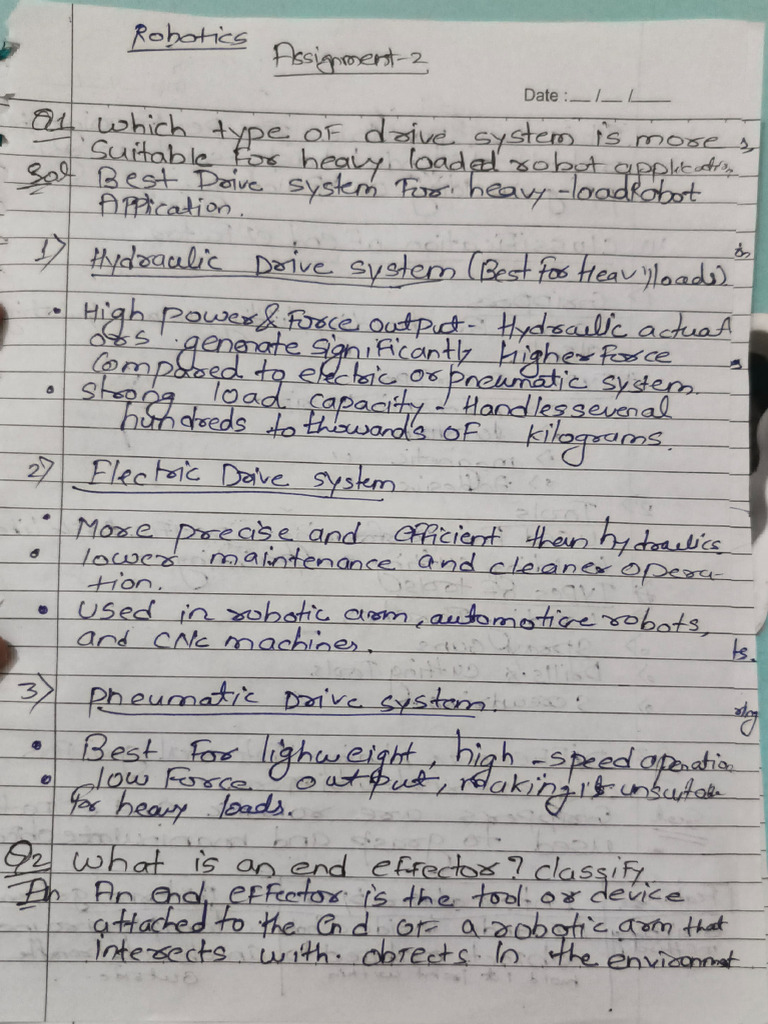 Robotics
Assignment-2
Date :__/__/___
Q1 Which type of drive system is more
Suitable for heavy loaded robot application
Sol Best Drive system For heavy-loadRobot
Appication.
1) Hydraulic Drive system (Best for Heavy loads)
• High power & Force output - Hydraulic actuat
ors generate significantly Higher Force
Compared to electric or pneumatic system.
• Strong load capacity - Handles several
hundreds to thowands of kilograms.
2) Electric Drive system
• More precise and efficient than hydraulics
• lower maintenance and cleaner opera-
tion.
• Used in robotic arm, automotive robots,
and CNC machines.
ts.
3) Pneumatic Drive system.
• Best For lighweight, high-speed operation
• low Force output, making it unsuitable
for heavy loads.
Q2 What is an end effector? classify.
An An end effector is the tool or device
attached to the end of a robotic arm that
intersects with objects in the environmet